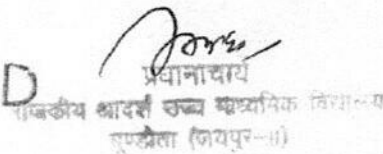 D
प्रधानाचार्य
राजकीय आदर्श उच्च माध्यमिक विद्यालय
(जयपुर--